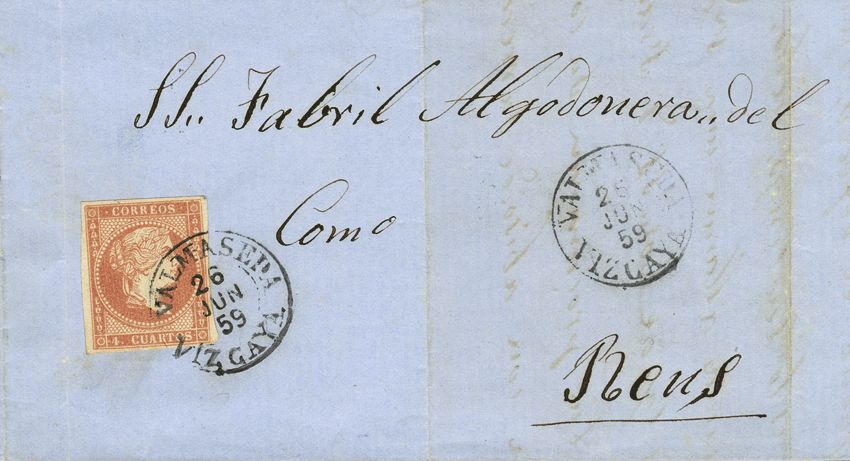 SS.. Fabril Algodonera.. del
Como
Reus
CORREOS
4. CUARTOS
VALMASEDA
26
JUN
59
VIZCAYA
VALMASEDA
26
JUN
59
VIZCAYA